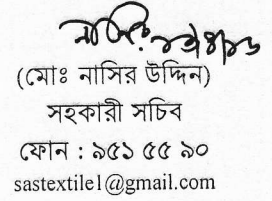 (মোঃ নাসির উদ্দিন)
সহকারী সচিব
ফোন : ৯৫১ ৫৫ ৯০
sastextile1@gmail.com